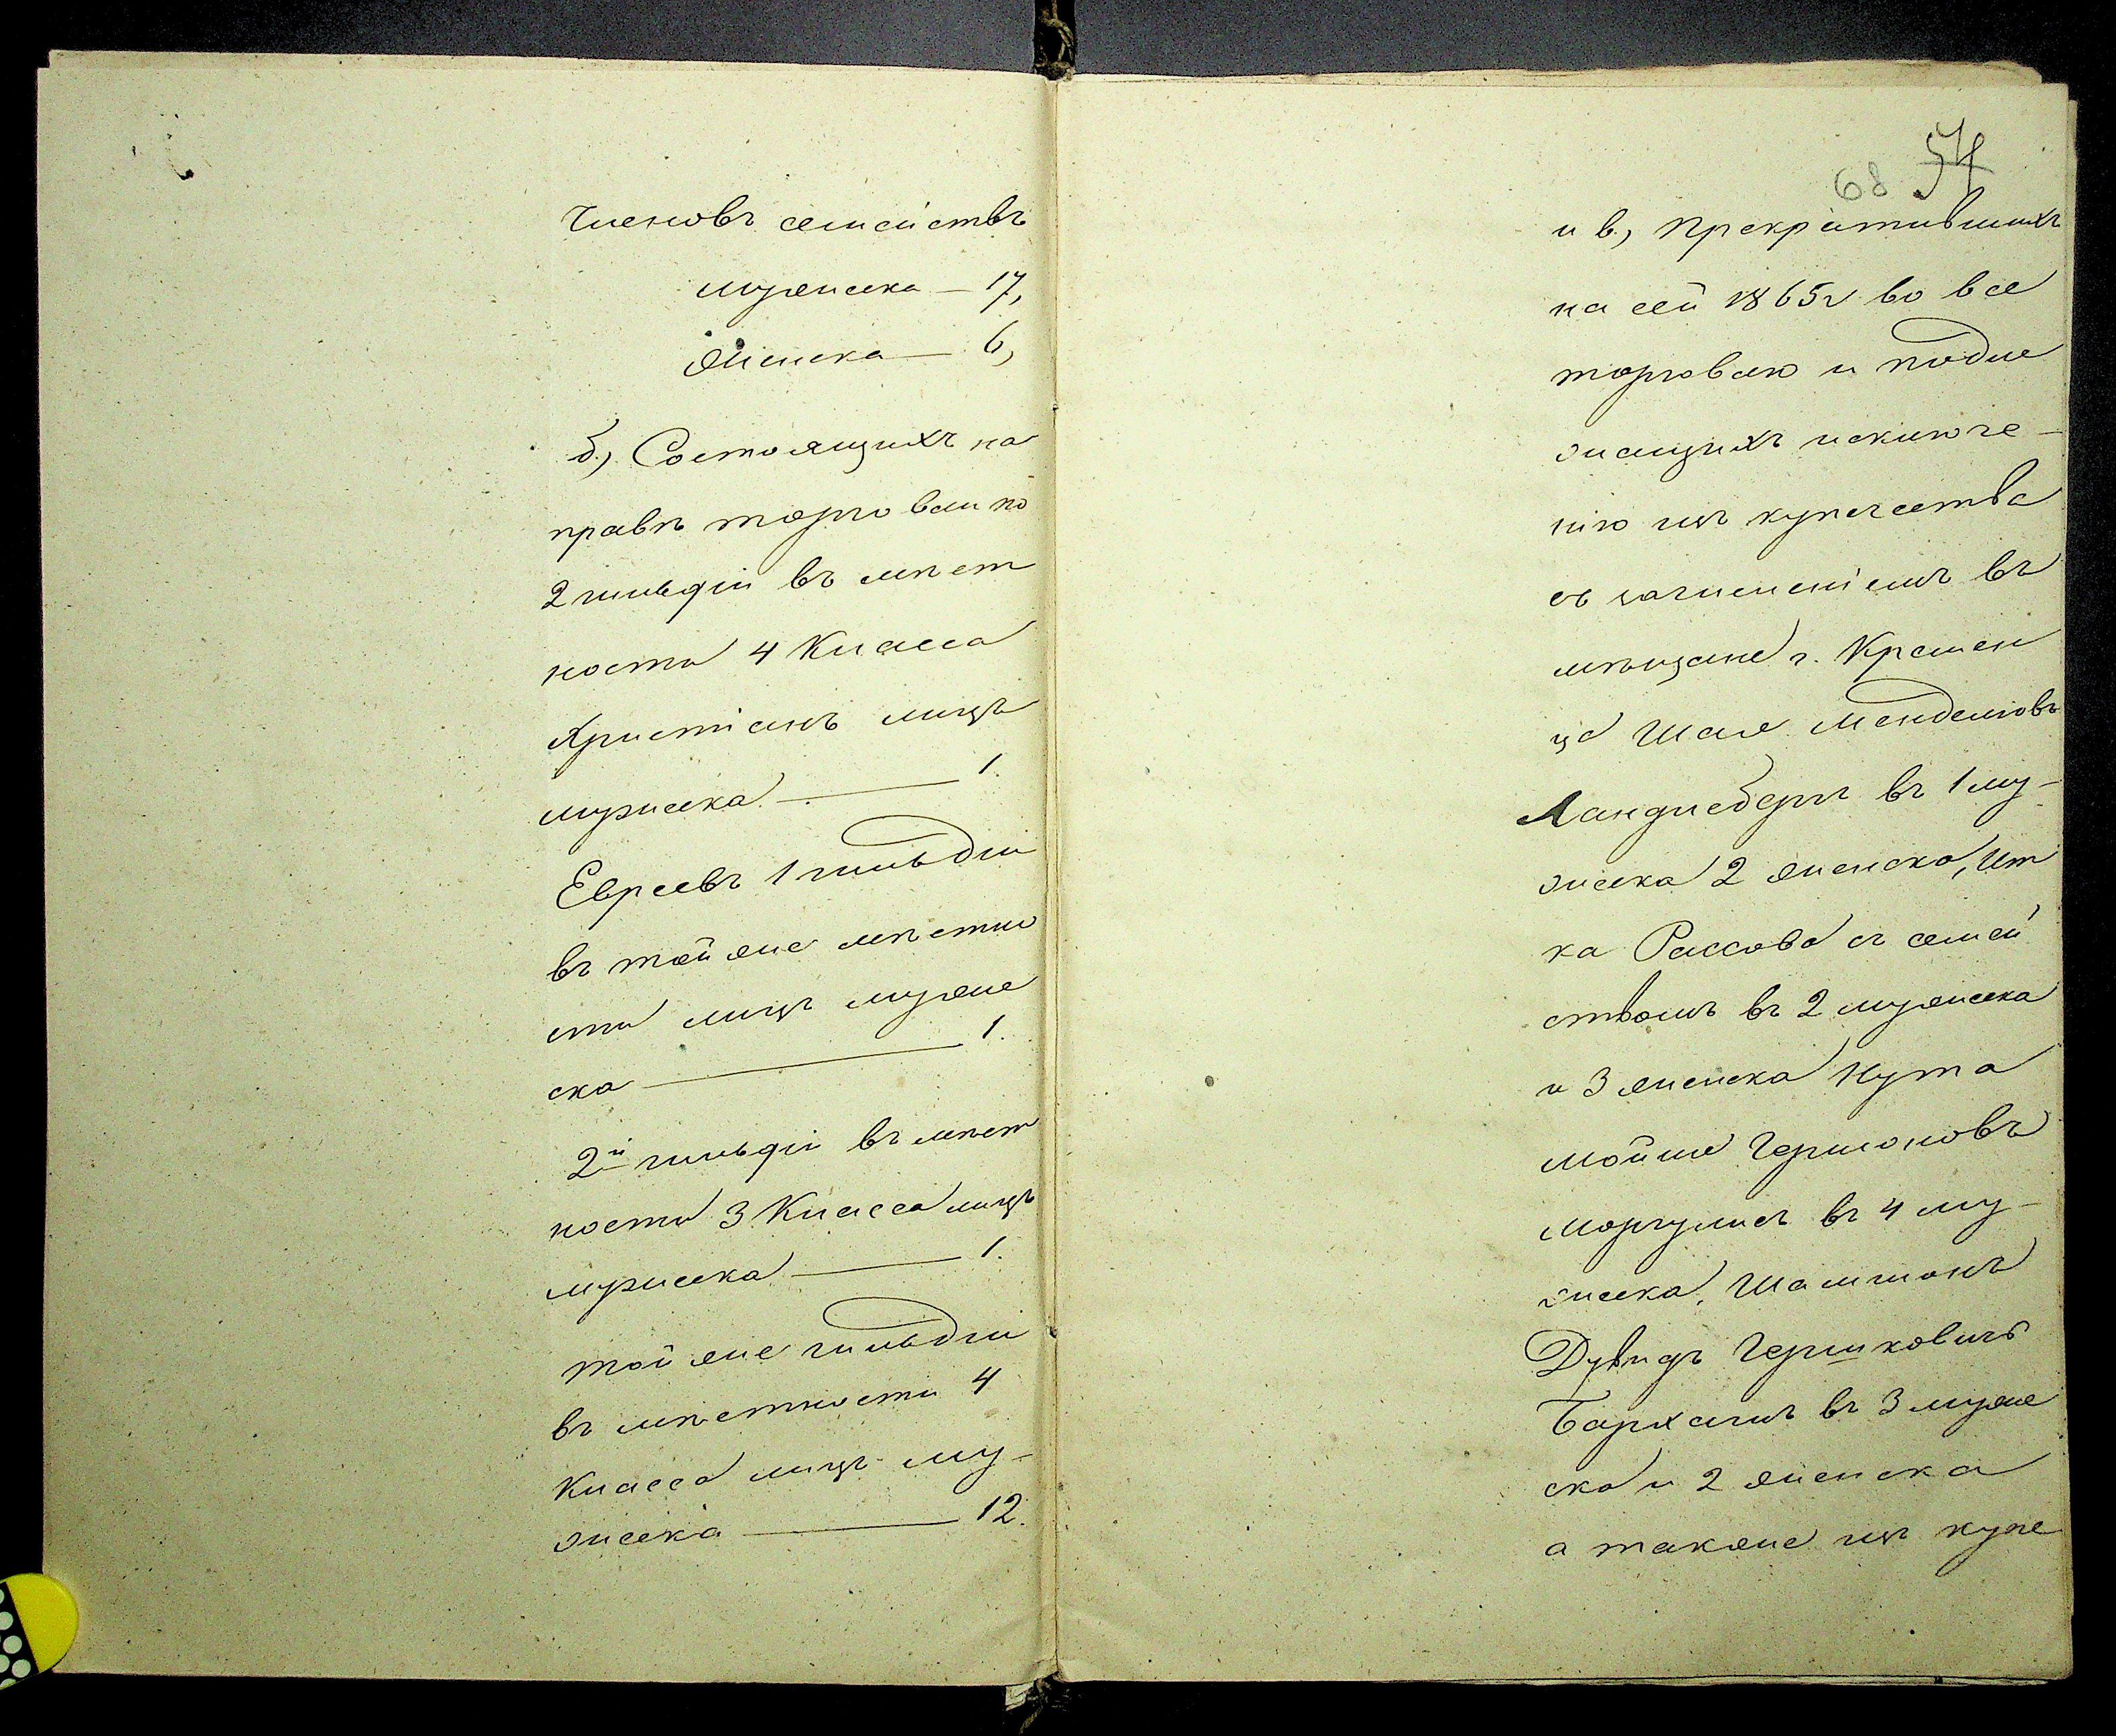 Членовъ семействъ
мужеска — 17,
женска — 6,
б., Состоящихъ на
правѣ торговли по
2 гильдіи въ мѣст
ности 4 Класса
Христіанъ лицъ
мужеска — 1.
Евреевъ 1 гильдіи
въ той же мѣстно
сти лицъ муже
ска — 1.
2й гильдіи въ мѣст
ности 3 Класса лицъ
мужеска — 1.
той же гильдіи
въ мѣстности 4
Класса лицъ му-
жеска — 12.
68 57
и в., прекратившихъ
на сей 1865 г. во все
торговлю и подле
жащихъ исключе-
нію изъ купечества
съ зачисленіемъ въ
мѣщане г. Кремен
ца Шая Менделювъ
Ландисбергъ въ 1 му-
жеска 2 женска, Ит
ка Рассова съ семей
ствомъ въ 2 мужеска
и 3 женска Нута
Мойше Гершоновъ
Моргулисъ въ 4 му-
жеска, Шамшонъ
Дувидъ Гершковичъ
Бархашъ въ 3 муже
ска и 2 женска
а также изъ купе